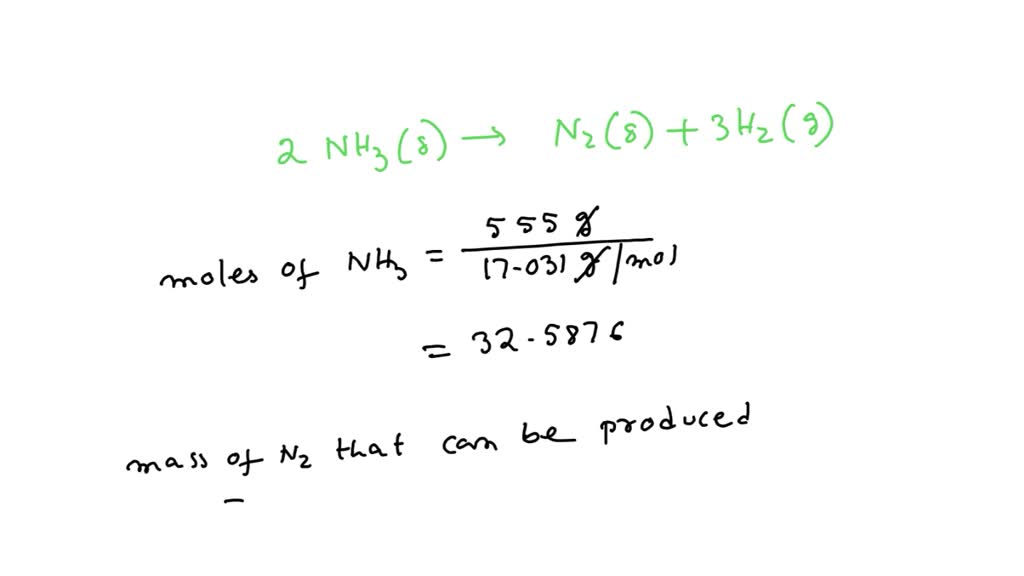 2 NH3(g) → N2(g) + 3H2(g)
moles of NH3 = 555 g / 17.031 g/mol
= 32.5876
mass of N2 that can be produced
=